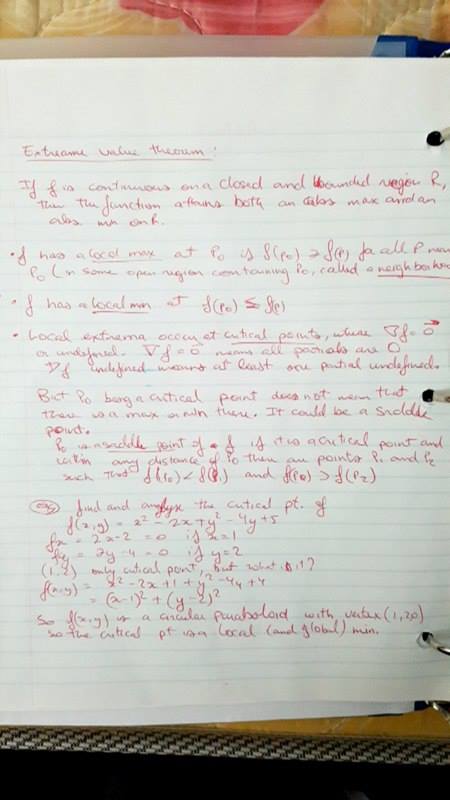 Extreame value theorum :
If f is continuous on a closed and bounded region R,
then the function attains both an abs max and an
abs. min on R.
• f has a local max at P₀ if f(P₀) ≥ f(P) for all P near
P₀ (in some open region containing P₀, called a neighborhood
• f has a local min at f(P₀) ≤ f(P)
• Local extrema occur at critical points, where ∇f = 0⃗
or undefined. ∇f = 0⃗ means all partials are 0
∇f undefined means at least one partial undefined.
But P₀ being a critical point does not mean that
there is a max or min there. It could be a saddle
point.
P₀ is a saddle point of f if it is a critical point and
within any distance of P₀ there are points P₁ and P₂
such that f(P₀) < f(P₁) and f(P₀) > f(P₂)
eg find and analyze the critical pt. of
f(x,y) = x² - 2x + y² - 4y + 5
fx = 2x - 2 = 0 if x = 1
fy = 2y - 4 = 0 if y = 2
(1,2) only critical point, but what is it?
f(x,y) = x² - 2x + 1 + y² - 4y + 4
= (x-1)² + (y-2)²
So f(x,y) is a circular paraboloid with vertex (1,2,0)
so the critical pt is a local (and global) min.